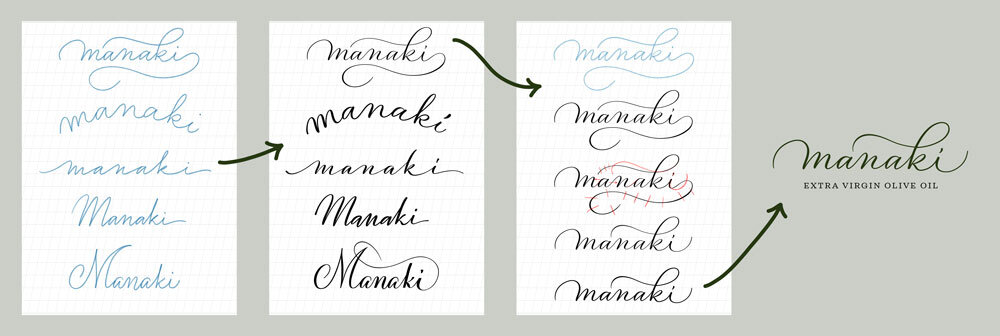 manaki
manaki
manaki
Manaki
Manaki
manaki
manaki
manaki
Manaki
Manaki
manaki
manaki
manaki
manaki
manaki
manaki
EXTRA VIRGIN OLIVE OIL